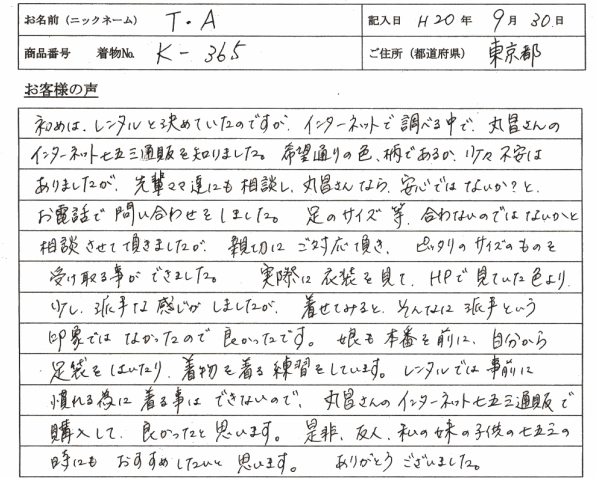 お名前（ニックネーム） T・A 記入日 H20年 9月 30日
商品番号 着物No. K-365 ご住所（都道府県） 東京都
お客様の声
初めは、レンタルと決めていたのですが、インターネットで調べる中で、丸昌さんの
インターネット七五三通販を知りました。希望通りの色、柄であるか、少々不安は
ありましたが、先輩ママ達にも相談し、丸昌さんなら、安心ではないか？と、
お電話で問い合わせをしました。足のサイズ等、合わないのではないかと
相談させて頂きましたが、親切にご対応頂き、ピッタリのサイズのものを
受け取る事ができました。実際に衣装を見て、HPで見ていた色より、
少し、派手な感じがしましたが、着せてみると、そんなに派手という
印象ではなかったので良かったです。娘も本番を前に、自分から
足袋をはいたり、着物を着る練習をしています。レンタルでは事前に
慣れる為に着る事はできないので、丸昌さんのインターネット七五三通販で
購入して、良かったと思います。是非、友人、私の妹の子供の七五三の
時にもおすすめしたいと思います。ありがとうございました。